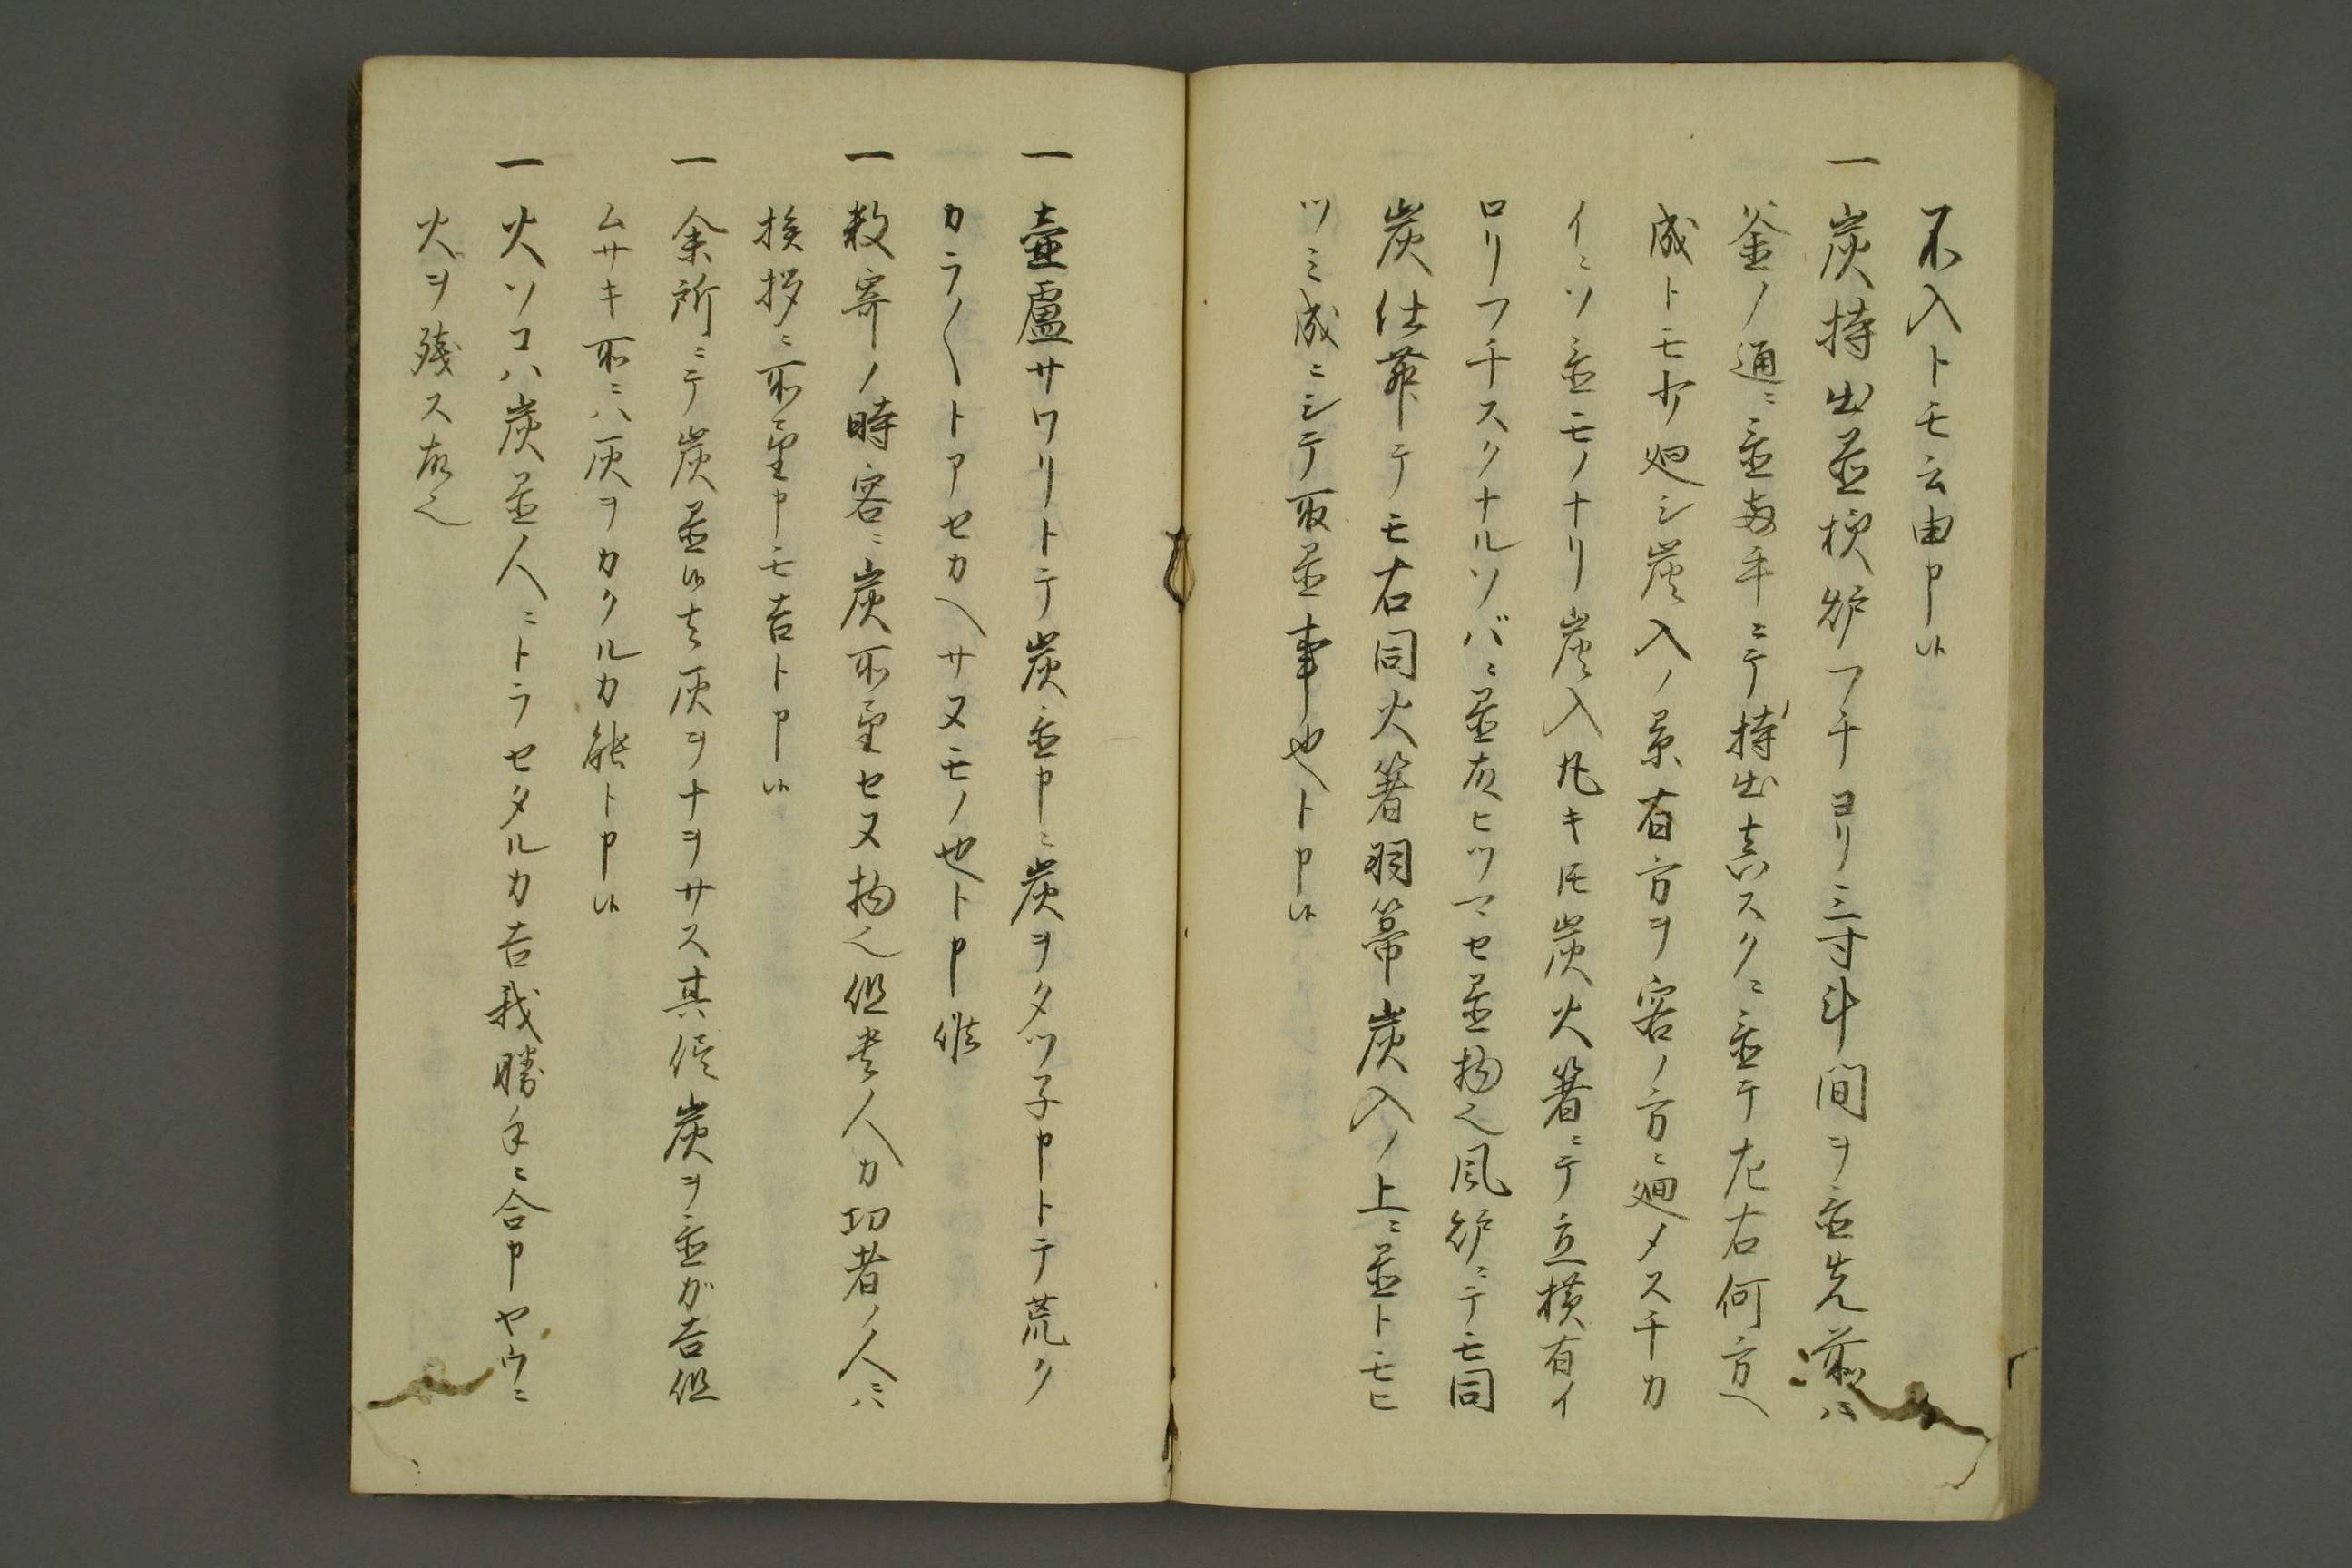 不入トモ云由申候
一 炭持出置様炉フチヨリ三寸斗間ヲ置先前ハ
釜ノ通ニ置毎手ニテ持出真スクニ置テ左右何方ヘ
成トモ少廻シ炭入ノ景有方ヲ客ノ方ニ廻メスチカ
イニソ置モノナリ炭入凡キ圧炭火箸ニテ立横有イ
ロリフチスクナルソバニ置故ヒツマセ置物也風炉ニテモ同
炭仕舞テモ右同火箸羽箒炭入ノ上ニ置トモヒ
ツミ成ニシテ取置事也ト申候
一 壷盧サワリトテ炭置申ニ炭ヲタツ子申トテ荒ク
カラ〳〵トアセカヘサヌモノ也ト申候
一 数寄ノ時客ニ炭所望セヌ物也但貴人カ功者ノ人ニハ
挨拶ニ所望申モ吉ト申候
一 余所ニテ炭置候共灰ヲナヲサス其侭炭ヲ置が吉但
ムサキ所ニハ灰ヲカクルカ能ト申候
一 火ソコハ炭置人ニトラセタルカ吉我勝手ニ合申ヤウニ
火ヲ残ス故也